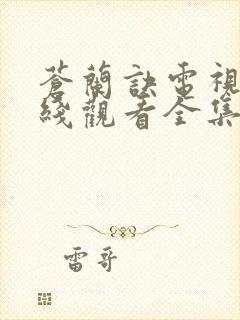 蒼蘭訣電視
綫觀看全集
雷哥